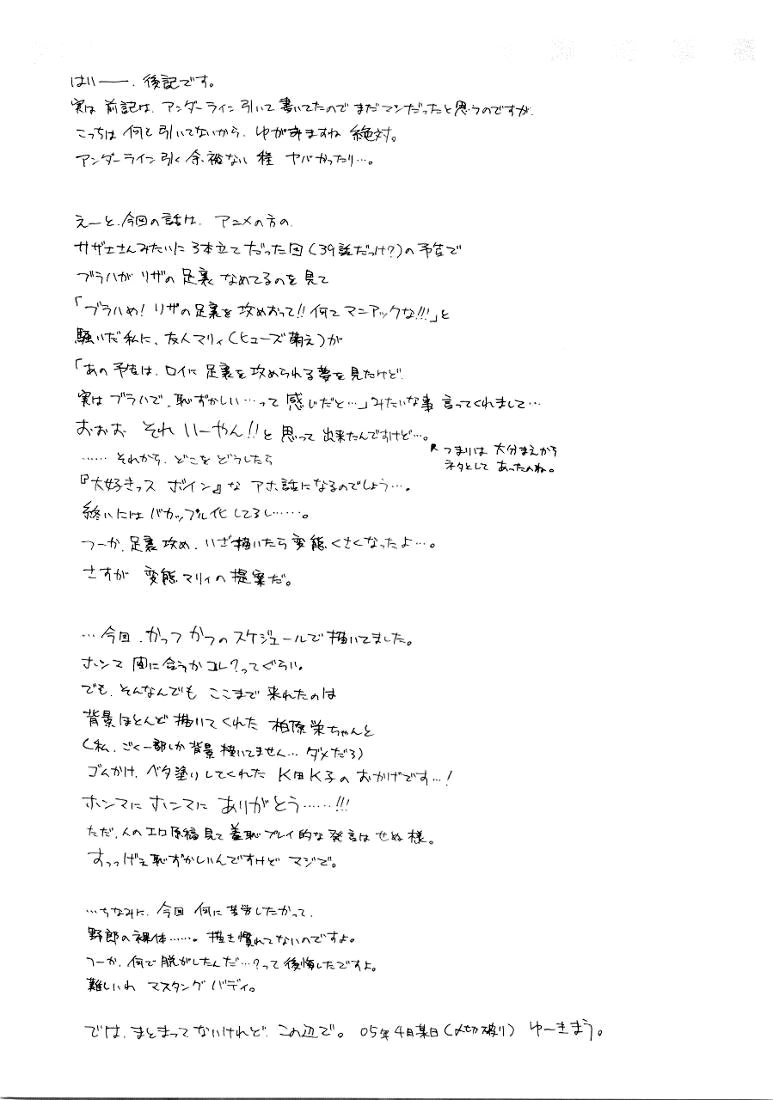 はいーー、後記です。
実は 前記は、アンダーライン引いて書いてたのでまだマシだったと思うのですが、
こっちは 何も引いてないから、ゆがみますね 絶対。
アンダーライン引く余裕ない程 ヤバかったり…。
えーと、今回の話は、アニメの方の、
サザエさんみたいに3本立てだった回(39話だっけ?)の予告で
ブラハが リザの 足裏 なめてるのを 見て
「ブラハめ! リザの足裏を攻めおって!! 何て マニアックな!!!」と
騒いだ私に、友人マリィ(ヒューズ萌え)が
「あの予告は、ロイに足裏を攻められる夢を見たけど、
実は ブラハで、恥ずかしい…って 感じだと…」みたいな事 言ってくれまして…
おぉぉお それ いーやん!! と 思って 出来たんですけど…。
つまりは 大分まえから
ネタとして あったのね。
…… それから、どこを どうしたら
『大好きっス ボイン』な アホ話になるのでしょう…。
終いには バカップル化してるし……。
つーか、足裏攻め、いざ描いたら 変態くさくなったよ…。
さすが 変態マリィの 提案だ。
…今回、かっつかつのスケジュールで描いてました。
ホンマ 間に合うかコレ?ってぐらい。
でも、そんなんでも ここまで 来れたのは
背景ほとんど 描いてくれた 柏原栄ちゃんと
(私、ごく一部しか背景描いてません… ダメだろ)
ゴムかけ、ベタ塗りしてくれた K田K子の おかげです…!
ホンマに ホンマに ありがとう……!!!
ただ、人のエロ原稿見て 羞恥プレイ的な 発言は せぬ様。
すっっげぇ恥ずかしいんですけど マジで。
…ちなみに、今回 何に苦労したかって、
野郎の裸体……。描き慣れてないのですよ。
つーか、何で脱がしたんだ…?って 後悔したですよ。
難しいわ マスタング バディ。
では、まとまってないけれど、この辺で。 05年4月某日(〆切破り) ゆーきまう。